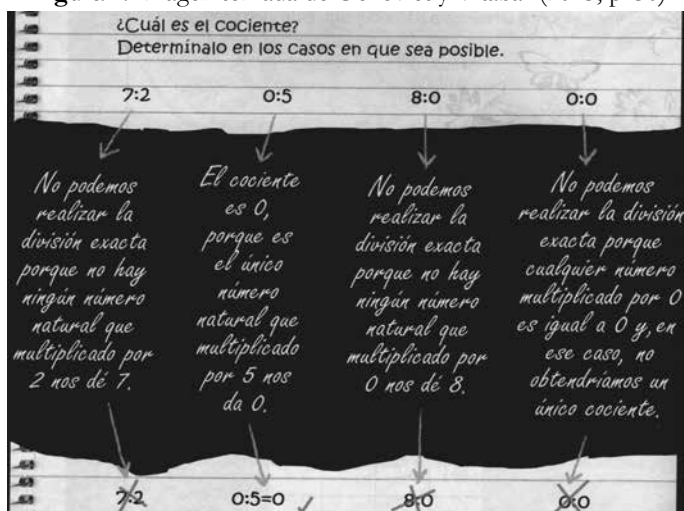 ¿Cuál es el cociente?
Determínalo en los casos en que sea posible.
7:2
0:5
8:0
0:0
No podemos
realizar la
división exacta
porque no hay
ningún número
natural que
multiplicado por
2 nos dé 7.
El cociente
es 0,
porque es
el único
número
natural que
multiplicado
por 5 nos
da 0.
No podemos
realizar la
división exacta
porque no hay
ningún número
natural que
multiplicado por
0 nos dé 8.
No podemos
realizar la división
exacta porque
cualquier número
multiplicado por 0
es igual a 0 y, en
ese caso, no
obtendríamos un
único cociente.
7:2
0:5=0
8:0
0:0